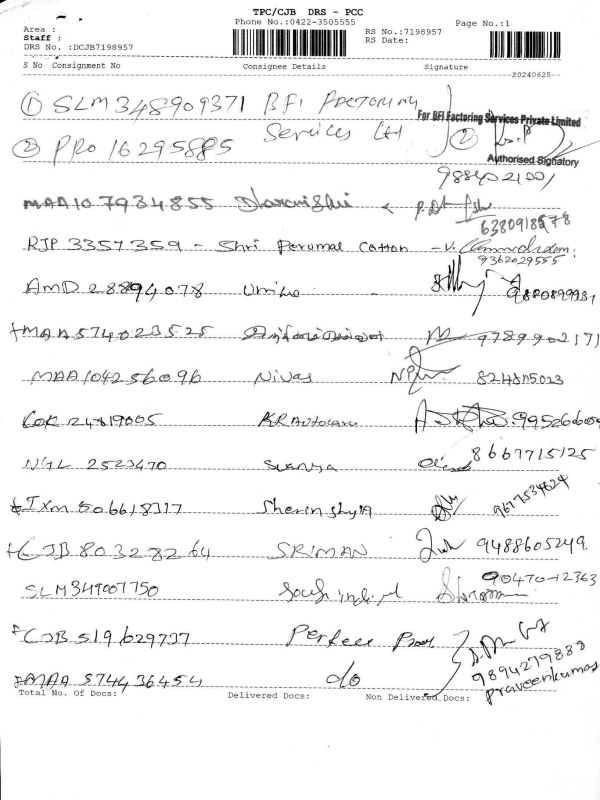 TPC/CJB DRS - PCC
Phone No.:0422-3505555
Page No.:1
Area :
Staff :
DRS No. :DCJB7198957
RS No.:7198957
RS Date:
S No Consignment No Consignee Details Signature
20240625
① SLM348909371 BFI Factoring
Services Ltd
② PRO 16295885
For BFI Factoring Services Private Limited
②
Authorised Signatory
9884021001
MAA107934855 Dharunishri
6380918578
RJP 3357359 - Shri Perumal Cotton
9362029555
AMD 28894078
+MAA574023525 9789902171
MAA104256096 Nivas
COK 24819005 KR Autocare
NGL 2523470 8667715125
IXM 506618317 Sherin
9677534624
+CJB 80328264 SRIMAN 9488605249
SLM349007750 South 90470-12363
CJB 519629737 Perfect
MAA 574436454 do
9894279883
Praveenkumar
Total No. Of Docs: Delivered Docs: Non Delivered Docs: